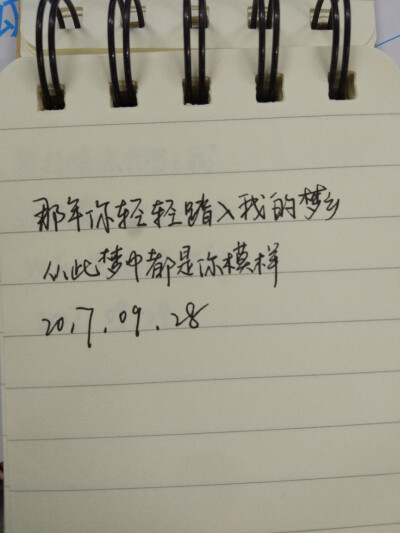 那年你轻轻踏入我的梦乡
从此梦中都是你模样
20,7.09.28